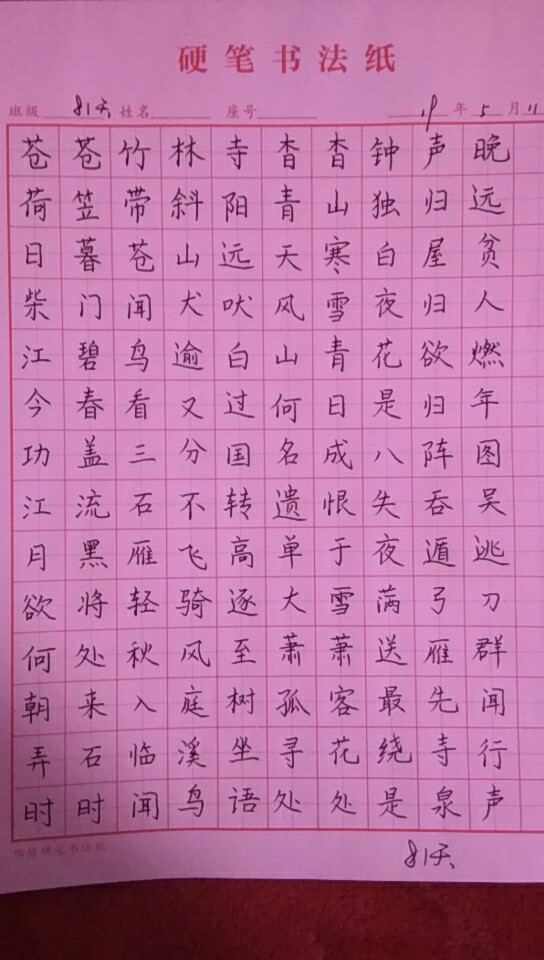 硬笔书法纸
班级 81天 姓名 座号 19年5月11
苍苍竹林寺杳杳钟声晚
荷笠带斜阳青山独归远
日暮苍山远天寒白屋贫
柴门闻犬吠风雪夜归人
江碧鸟逾白山青花欲燃
今春看又过何日是归年
功盖三分国名成八阵图
江流石不转遗恨失吞吴
月黑雁飞高单于夜遁逃
欲将轻骑逐大雪满弓刀
何处秋风至萧萧送雁群
朝来入庭树孤客最先闻
弄石临溪坐寻花绕寺行
时时闻鸟语处处是泉声
硬笔书法纸
81天